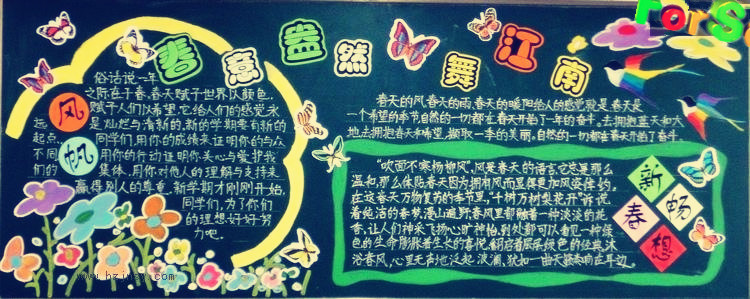 春意盎然舞江南
俗话说一年
之际在于春,春天赋予世界以颜色,
赋予人们以希望,它给人们的感觉永
远是灿烂与清新的,新的学期要有新的
起点。同学们,用你的成绩来证明你的与众
不同,用你的行动证明你关心与爱护我
们的集体,用你对他人的理解与支持来
赢得别人的尊重,新学期才刚刚开始,
同学们,为了你们
的理想好好努
力吧。
风
帆
春天的风,春天的雨,春天的暖阳给人的感觉就是春天是
一个希望的季节,自然的一切都在春天开始了一年的奋斗。去拥抱蓝天和大
地,去拥抱春天和希望,撷取一季的美丽,自然的一切都在春天开始了奋斗。
"吹面不寒杨柳风",风是春天的语言,它总是那么
温和,那么体贴,春天因为拥有风而显得更加风姿绰约。
在这春天万物复苏的季节里,"千树万树梨花开"诉说
着纯洁的春梦,漫山遍野春风里都融着一种淡淡的花
香,让人们神采飞扬心旷神怡,到处都可以看见一种绿
色的生命膨胀着生长的喜悦,翻启着层层绿色的经典,沐
浴春风,心里无声地泛起波浪,犹如一曲天籁奏响在耳边。
新
畅
春
想
ForS